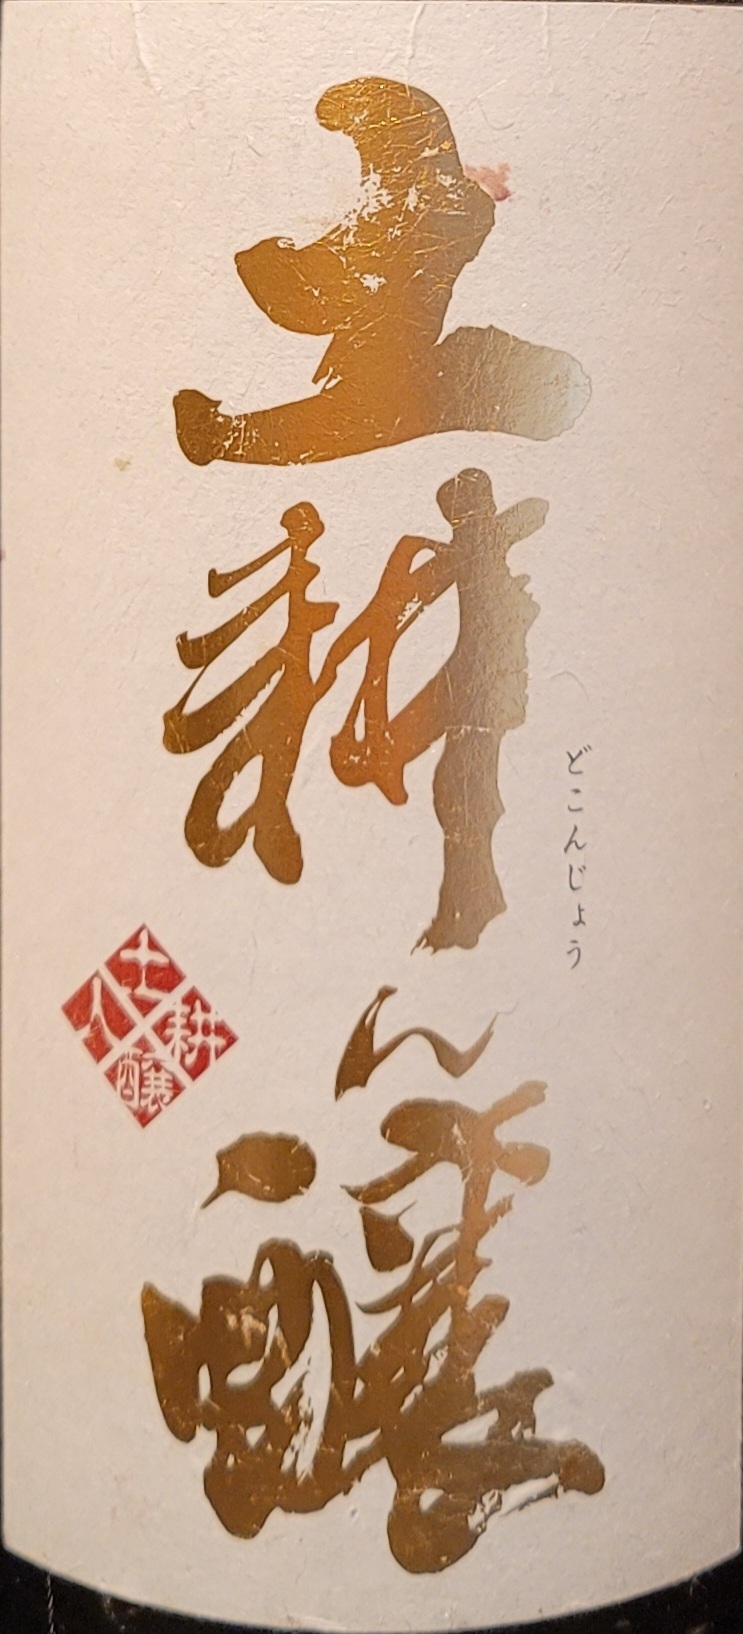 土耕ん醸
どこんじょう
土
人
耕
醸